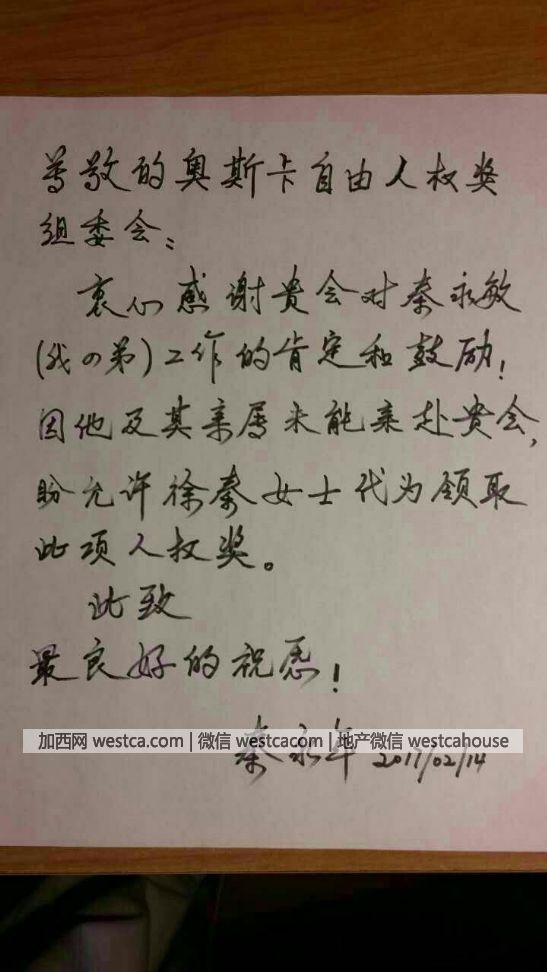 尊敬的奥斯卡自由人权奖
组委会：
衷心感谢贵会对秦永敏
(我の弟)工作的肯定和鼓励！
因他及其亲属未能来赴贵会,
盼允许徐秦女士代为领取
此项人权奖。
此致
最良好的祝愿！
加西网 westca.com | 微信 westcacom | 地产微信 westcahouse
秦永年 2017/02/14